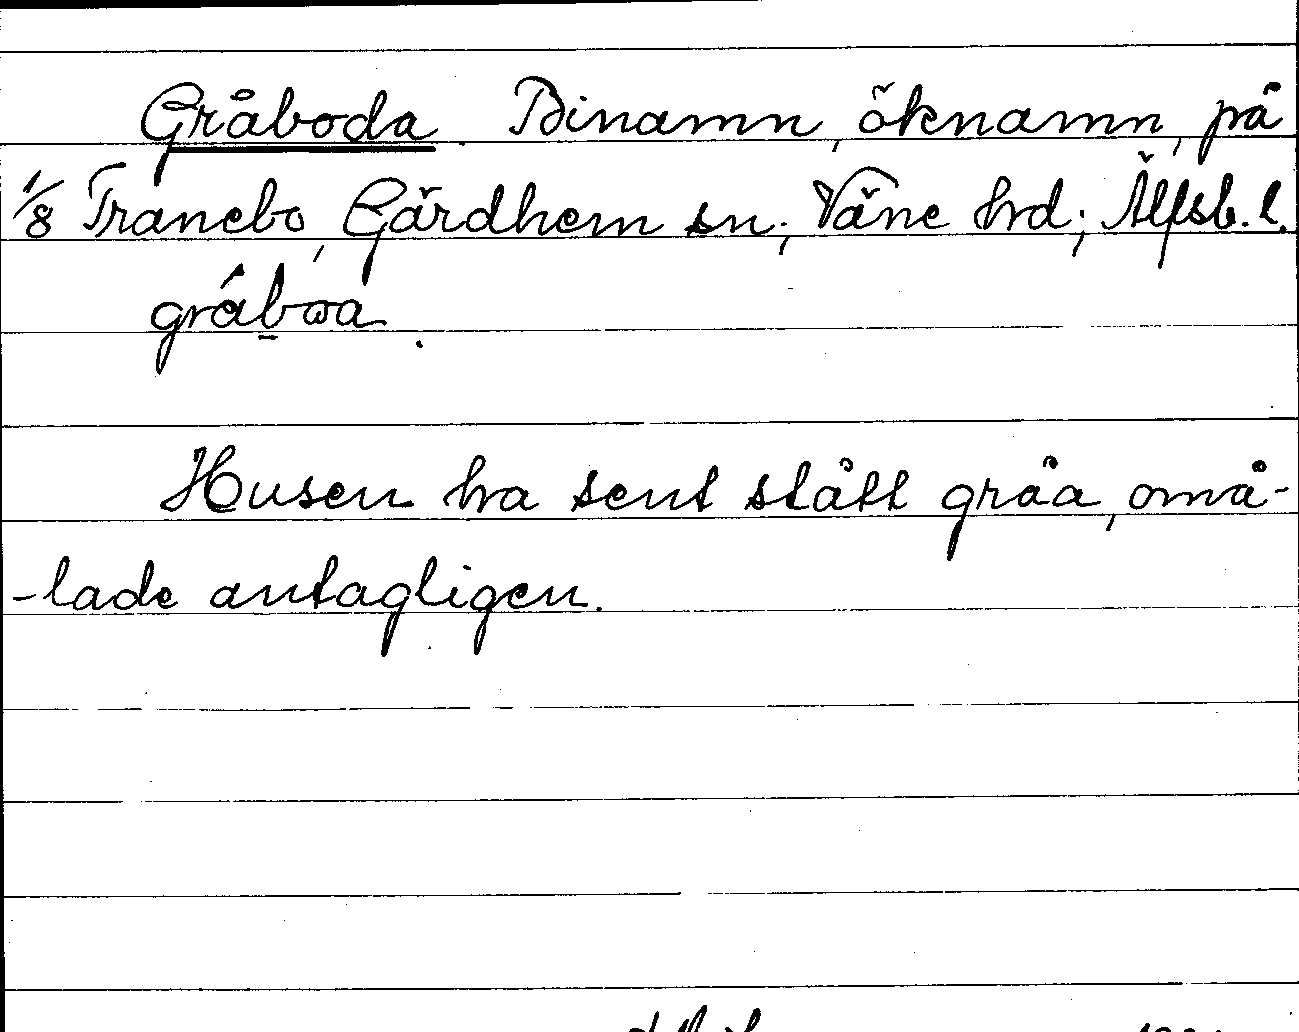 Gråboda. Binamn, öknamn, på
1/8 Tranebo, Gärdhem sn; Väne hd; Älfsb. l.
gråbωa.
Husen ha sent stått gråa, omå-
-lade antagligen.